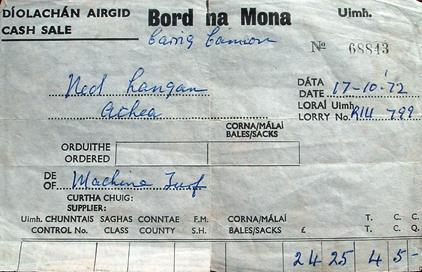 DÍOLACHÁN AIRGID Bord na Mona Uimh.
CASH SALE
Nº 68843
Ned Langan
Athea
DÁTA
DATE 17-10-'72
LORAÍ Uimh.
LORRY No. RIU 799
CORNA/MÁLAÍ
BALES/SACKS
ORDUITHE
ORDERED
DE
OF Machine Turf
CURTHA CHUIG:
SUPPLIER:
Uimh. CHUNNTAIS SAGHAS CONNTAE F.M. CORNA/MÁLAÍ T. C. C.
CONTROL No. CLASS COUNTY S.H. BALES/SACKS £ T. C. Q.
24 25 4 5-